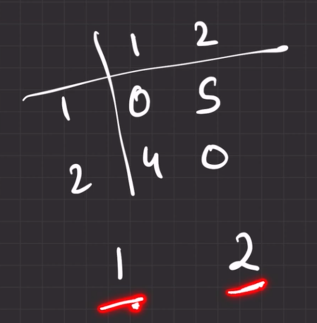 1 2
1 0 5
2 4 0
1 2